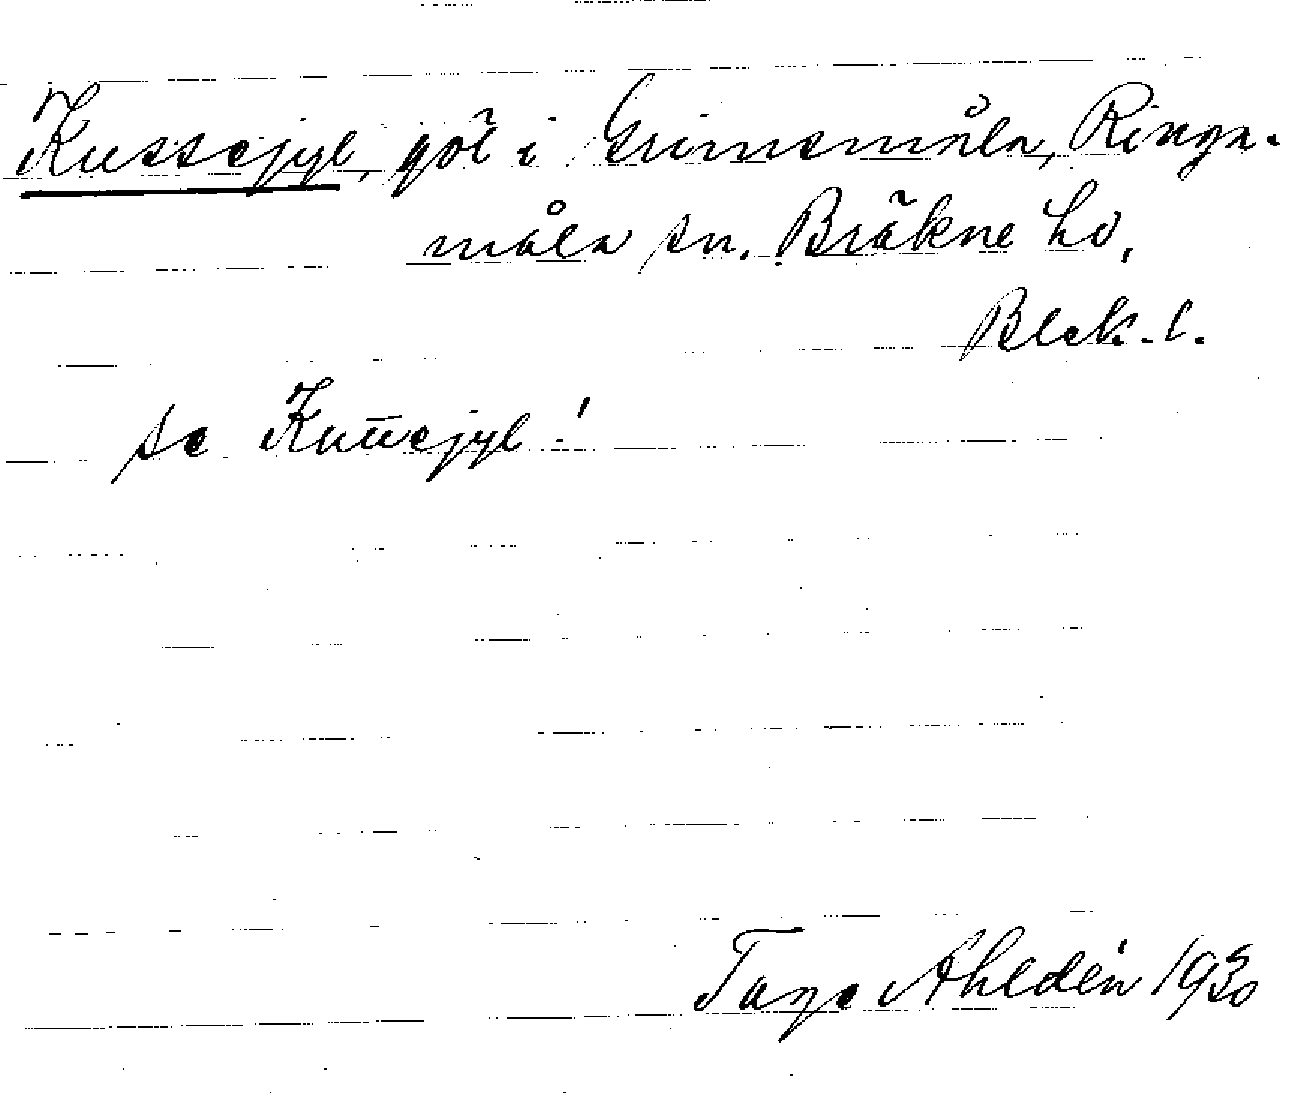 Kussejyl, göl i Grimsmåla, Ringa-
måla sn. Bräkne hd,
Blek. l.
se Kuttejyl!
Tage Ahldén 1930